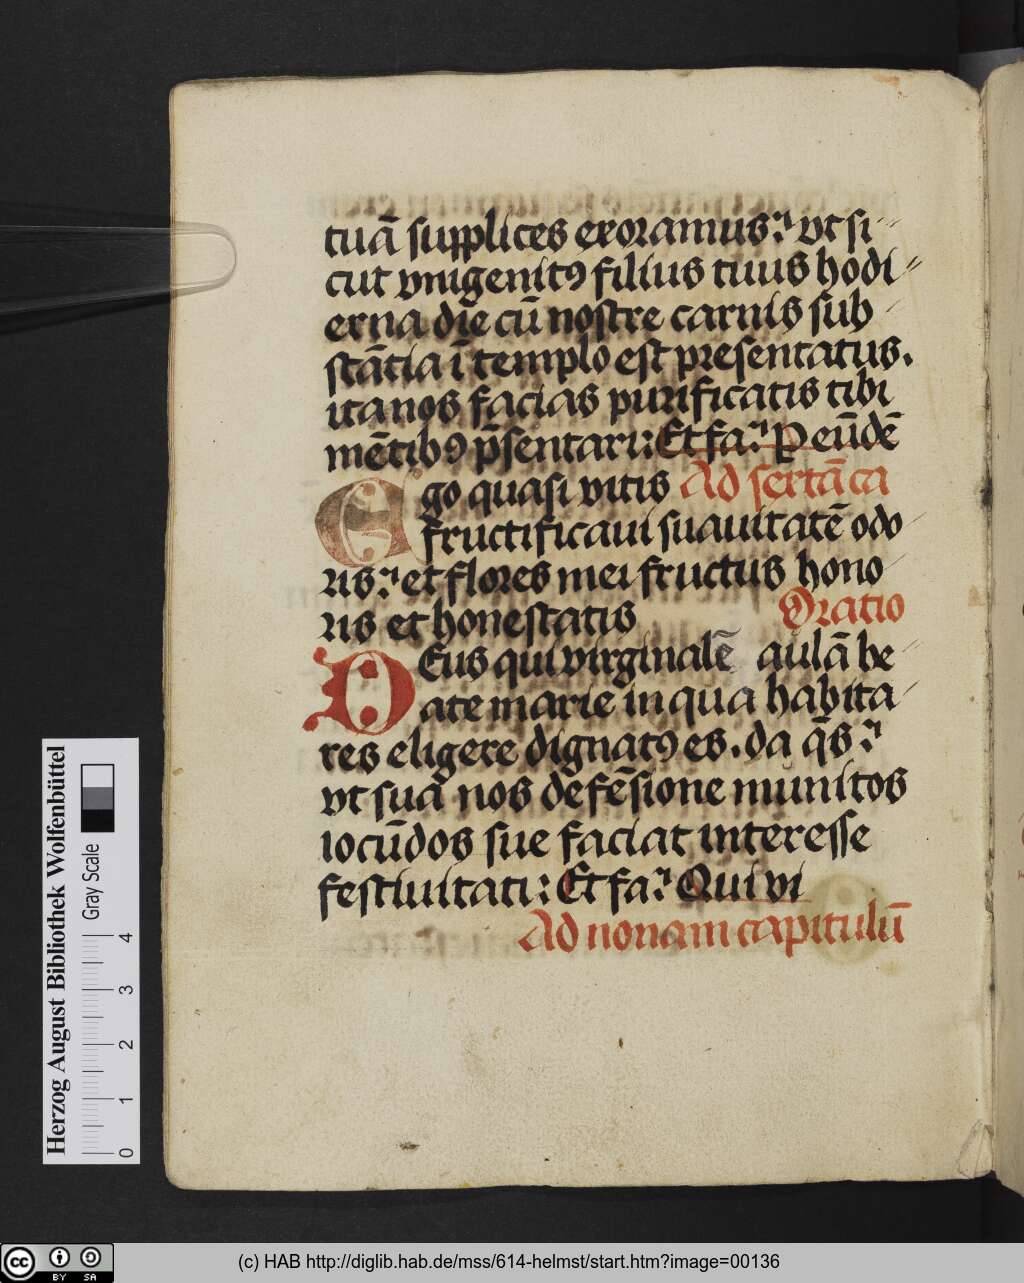 tuā supplices exoramus: vt si
cut vnigenitꝯ filius tuus hodi
erna die cū nostre carnis sub
stātia ī templo est presentatus.
ita nos facias purificatis tibi
mētibꝯ p̄sentari: Et fa: Per eūdē
Ego quasi vitis Ad sextā ca
fructificaui suauitatē odo
ris: et flores mei fructus hono
ris et honestatis Oratio
DEus qui virginalē aulā be
ate marie in qua habita
res eligere dignatꝯ es. da q̄s:
vt sua nos defēsione munitos
iocūdos sue faciat interesse
festiuitati: Et fa: Qui vi
Ad nonam capitulū
Herzog August Bibliothek Wolfenbüttel
Gray Scale
0 1 2 3 4
cc BY SA
(c) HAB http://diglib.hab.de/mss/614-helmst/start.htm?image=00136